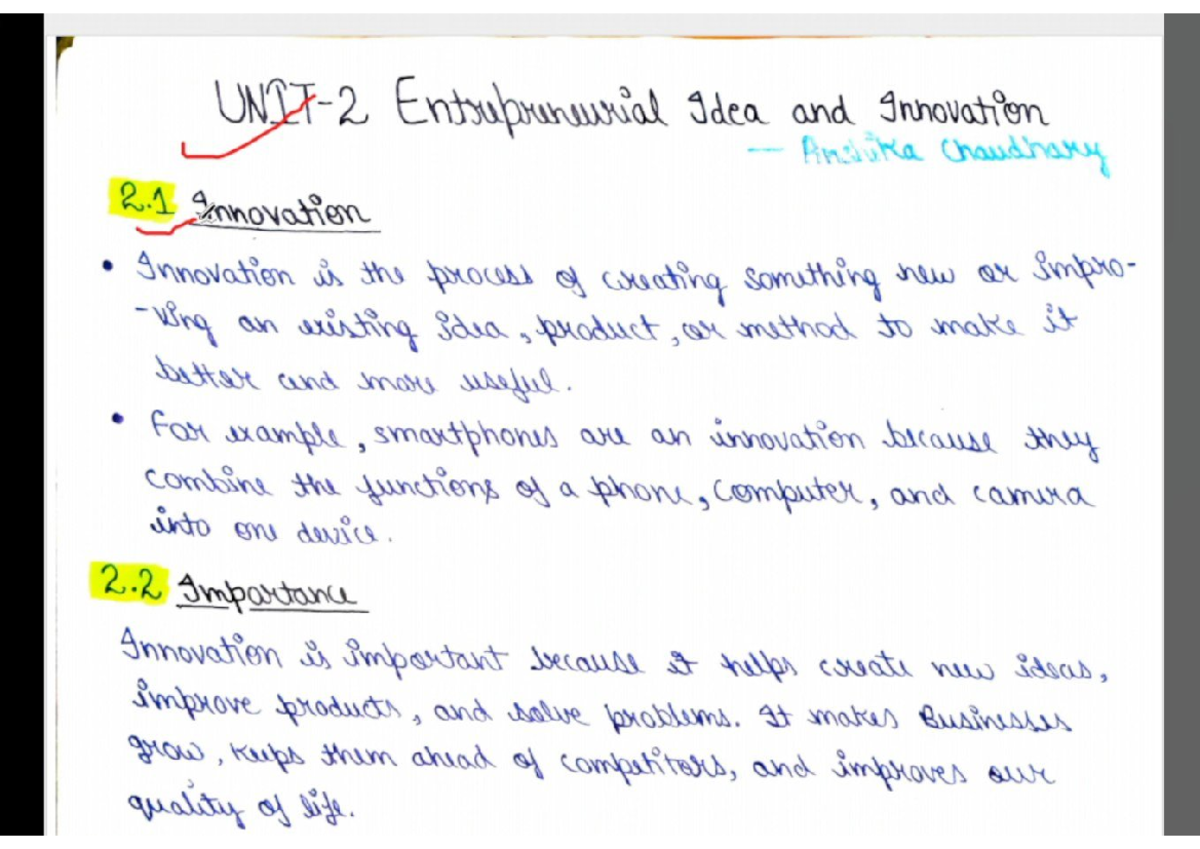 UNIT-2 Entrepreneurial Idea and Innovation
— Anshika Chaudhary
2.1 Innovation
• Innovation is the process of creating something new or impro-
-ving an existing idea, product, or method to make it
better and more useful.
• For example, smartphones are an innovation because they
combine the functions of a phone, computer, and camera
into one device.
2.2 Importance
Innovation is important because it helps create new ideas,
improve products, and solve problems. It makes Businesses
grow, keeps them ahead of competitors, and improves our
quality of life.